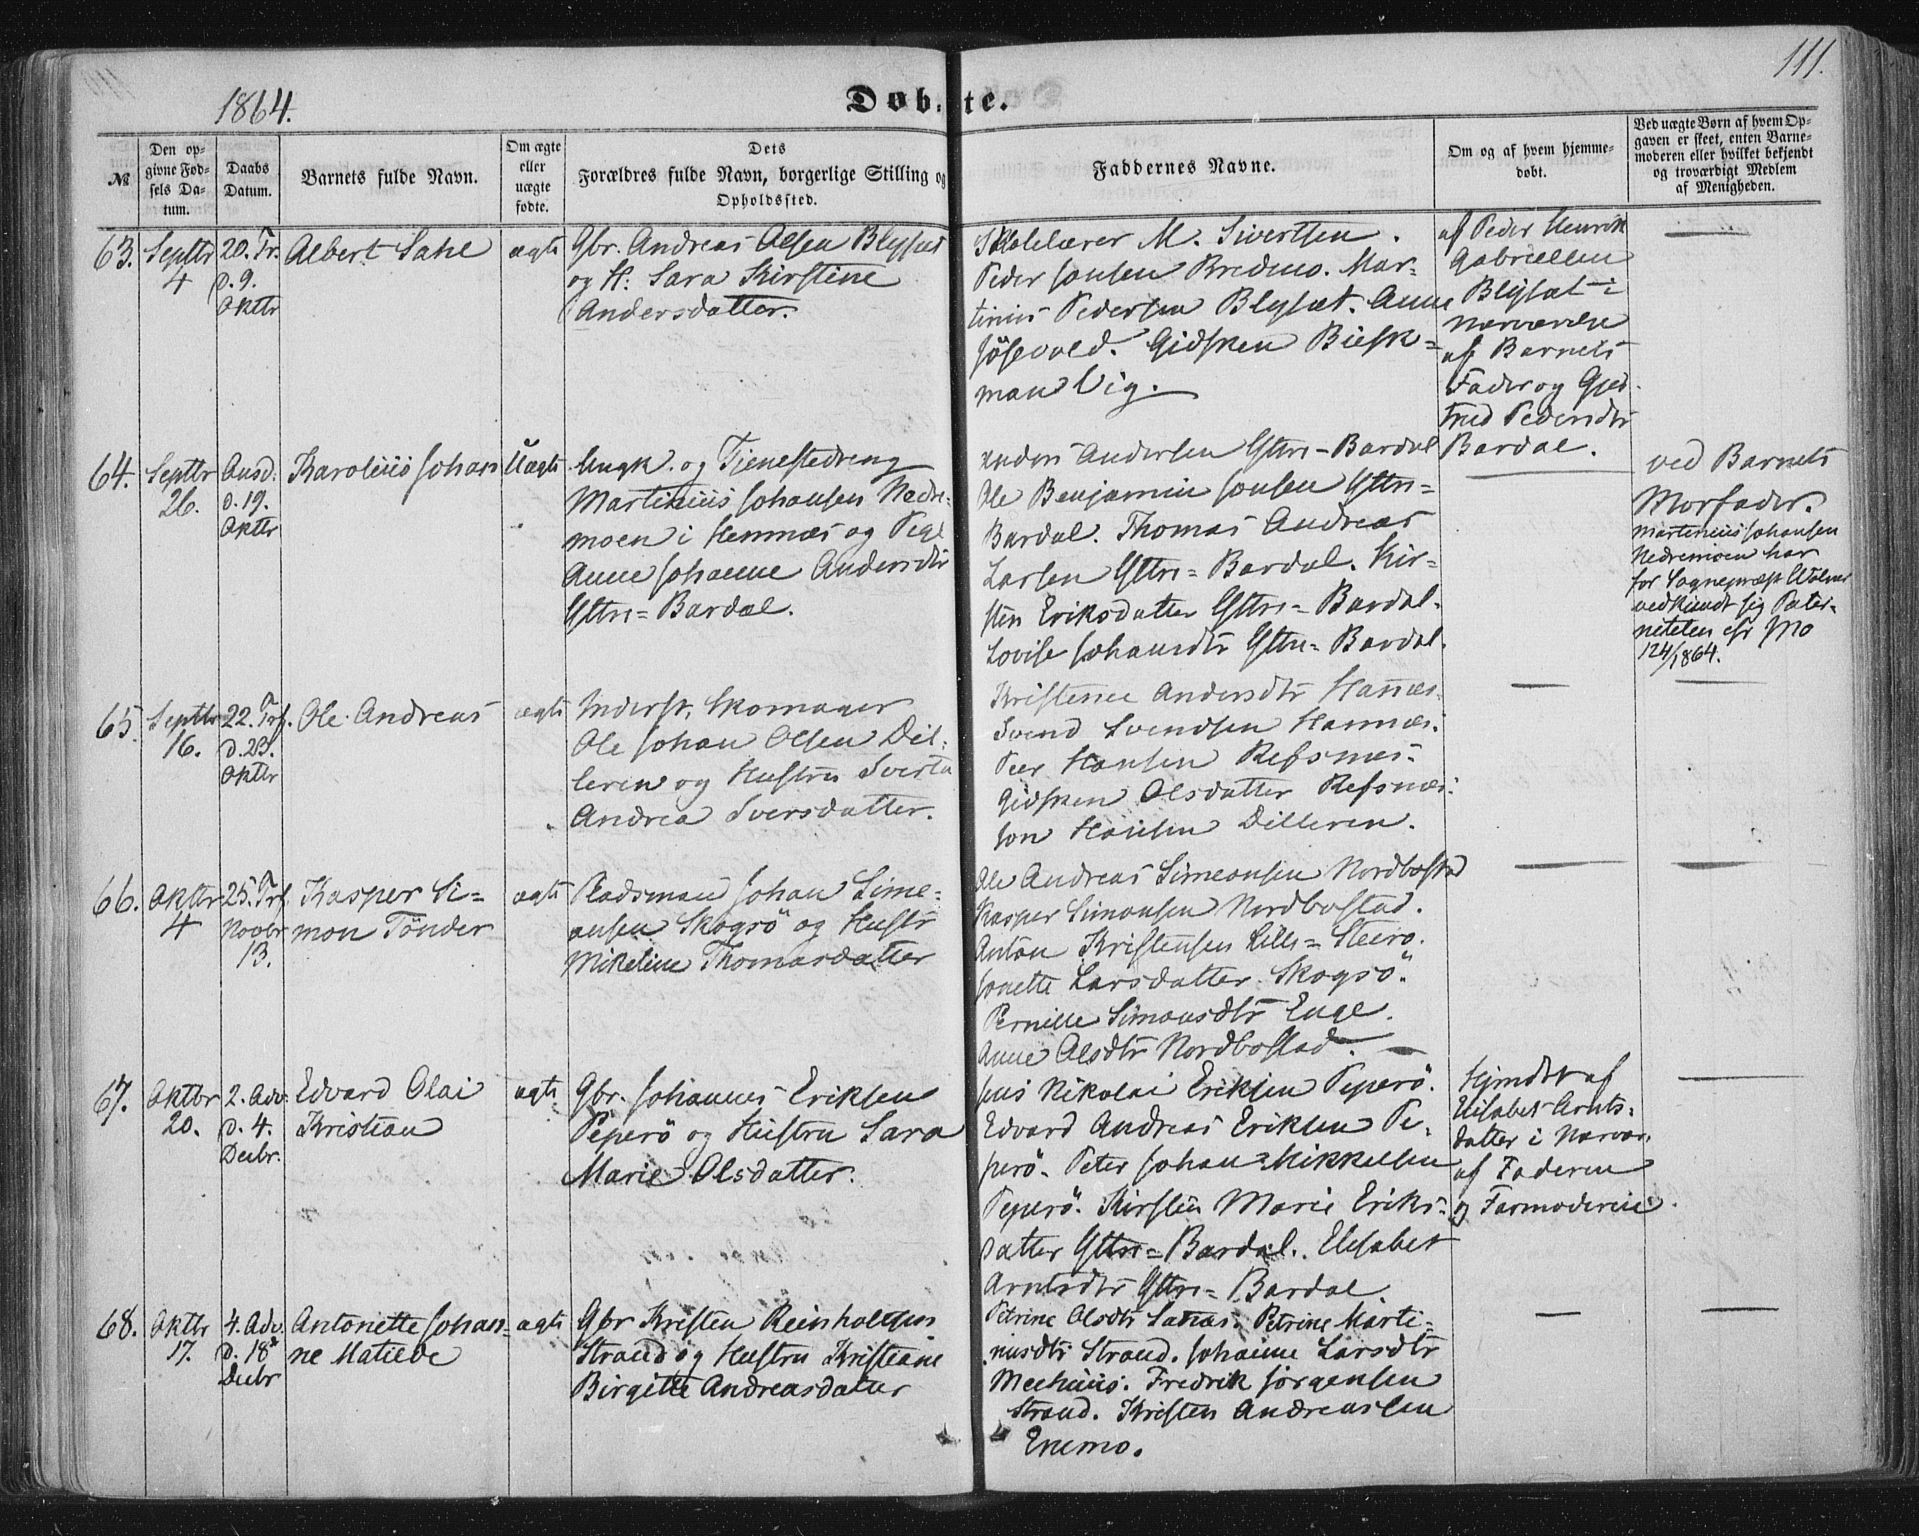 111.
1864.
Døbte.
№
Den op-
givne Fød-
sels Da-
tum.
Daabs
Datum.
Barnets fulde Navn.
Om ægte
eller
uægte
fødte.
Dets
Forældres fulde Navn, borgerlige Stilling og
Opholdssted.
Faddernes Navne.
Om og af hvem hjemme-
døbt.
Ved uægte Børn af hvem Op-
gaven er skeet, enten Barne-
moderen eller hvilket bekjendt
og troværdigt Medlem
af Menigheden.
63.
Septbr
4
20. Tr.
d. 9.
Oktbr
Albert Sahl
ægte
Gbr. Andreas Olsen Blysæt
og H: Sara Kirstine
Andersdatter.
Skolelærer M. Sivertsen.
Peder Jonsen Bredmo. Mar-
tinus Pedersen Blysæt. Anne
Gidsken
man Vig.
af Peder Henrik
Gabrielsen
Blysæt i
Nærværelse
af Barnets
Fader og Gjer-
trud Pedersdtr
Bardal.
64.
Septbr
26.
Onsd.
d. 19.
Oktbr
Karolius Johan
Uægte
Ungk. og Tjenestedreng
Martinius Johansen Nedre-
moen i Hemnæs og Pige
Anne Johanne Andersdtr
Yttre-Bardal.
Anders Andersen Yttre-Bardal
Ole Benjamin Jonsen Yttre-
Bardal. Thomas Andreas
Larsen Yttre-Bardal. Kir-
sten Eriksdatter Yttre-Bardal.
Lovise Johansdtr Yttre-Bardal.
ved Barnets
Morfader.
Martinius Johansen
Nedremoen har
for Sognepræst Wolner
vedkjendt sig Pater-
niteten efr Mo
124/1864.
65.
Septbr
16.
22. Trf.
d. 23.
Oktbr
Ole Andreas
ægte
Inderst, Skomager
Ole Johan Olsen Dil-
leren og Hustru Sverta
Andrea Iversdatter.
Kristense Andersdtr Hannæs.
Svend Svendsen Hannæs.
Peer Hansen Refsnæs.
Gidsken Olsdatter Refsnæs.
Jon Hansen Dilleren.
66.
Oktbr
4
25. Trf.
Novbr
13.
Kasper Si-
mon Tønder
ægte
Pladsmand Johan Sime-
onsen Skogsö og Hustr
Mikeline Thomasdatter
Ole Andreas Simeonsen Nordbostad
Kasper Simonsen Nordbostad.
Anton Kristensen Lille-Steiro.
Jonette Larsdatter Skogsö.
Pernille Simonsdtr Enge.
Anne Olsdtr Nordbostad.
67.
Oktbr
20.
2. Adv.
d. 4.
Decbr.
Edvard Olai
Kristian
ægte
Gbr. Johannes Eriksen
Peperö og Hustru Sara
Marie Olsdatter.
Jens Nikolai Eriksen Peperö.
Edvard Andreas Eriksen Pe-
perö. Peter Johan Mikkelsen
Peperö. Kirsten Marie Eriks-
datter Yttre-Bardal. Elisabet
Arntsdtr Yttre-Bardal.
Hjmdbt af
Elisabet Arnts-
datter i Nærvær.
af Faderen
og Farmoderen.
68.
Oktbr
17.
4. Adv.
d. 18d
Decbr
Antonette Johan-
ne Matilde
ægte
Gbr Kristen Reinholtsen
Strand og Hustru Kristiane
Birgitte Andreasdatter
Petrine Olsdtr Sanæs. Petrine Marti-
nusdtr Strand. Johanne Larsdtr
Fredrik Jørgensen
Strand. Kristen Andreassen
Enemo.